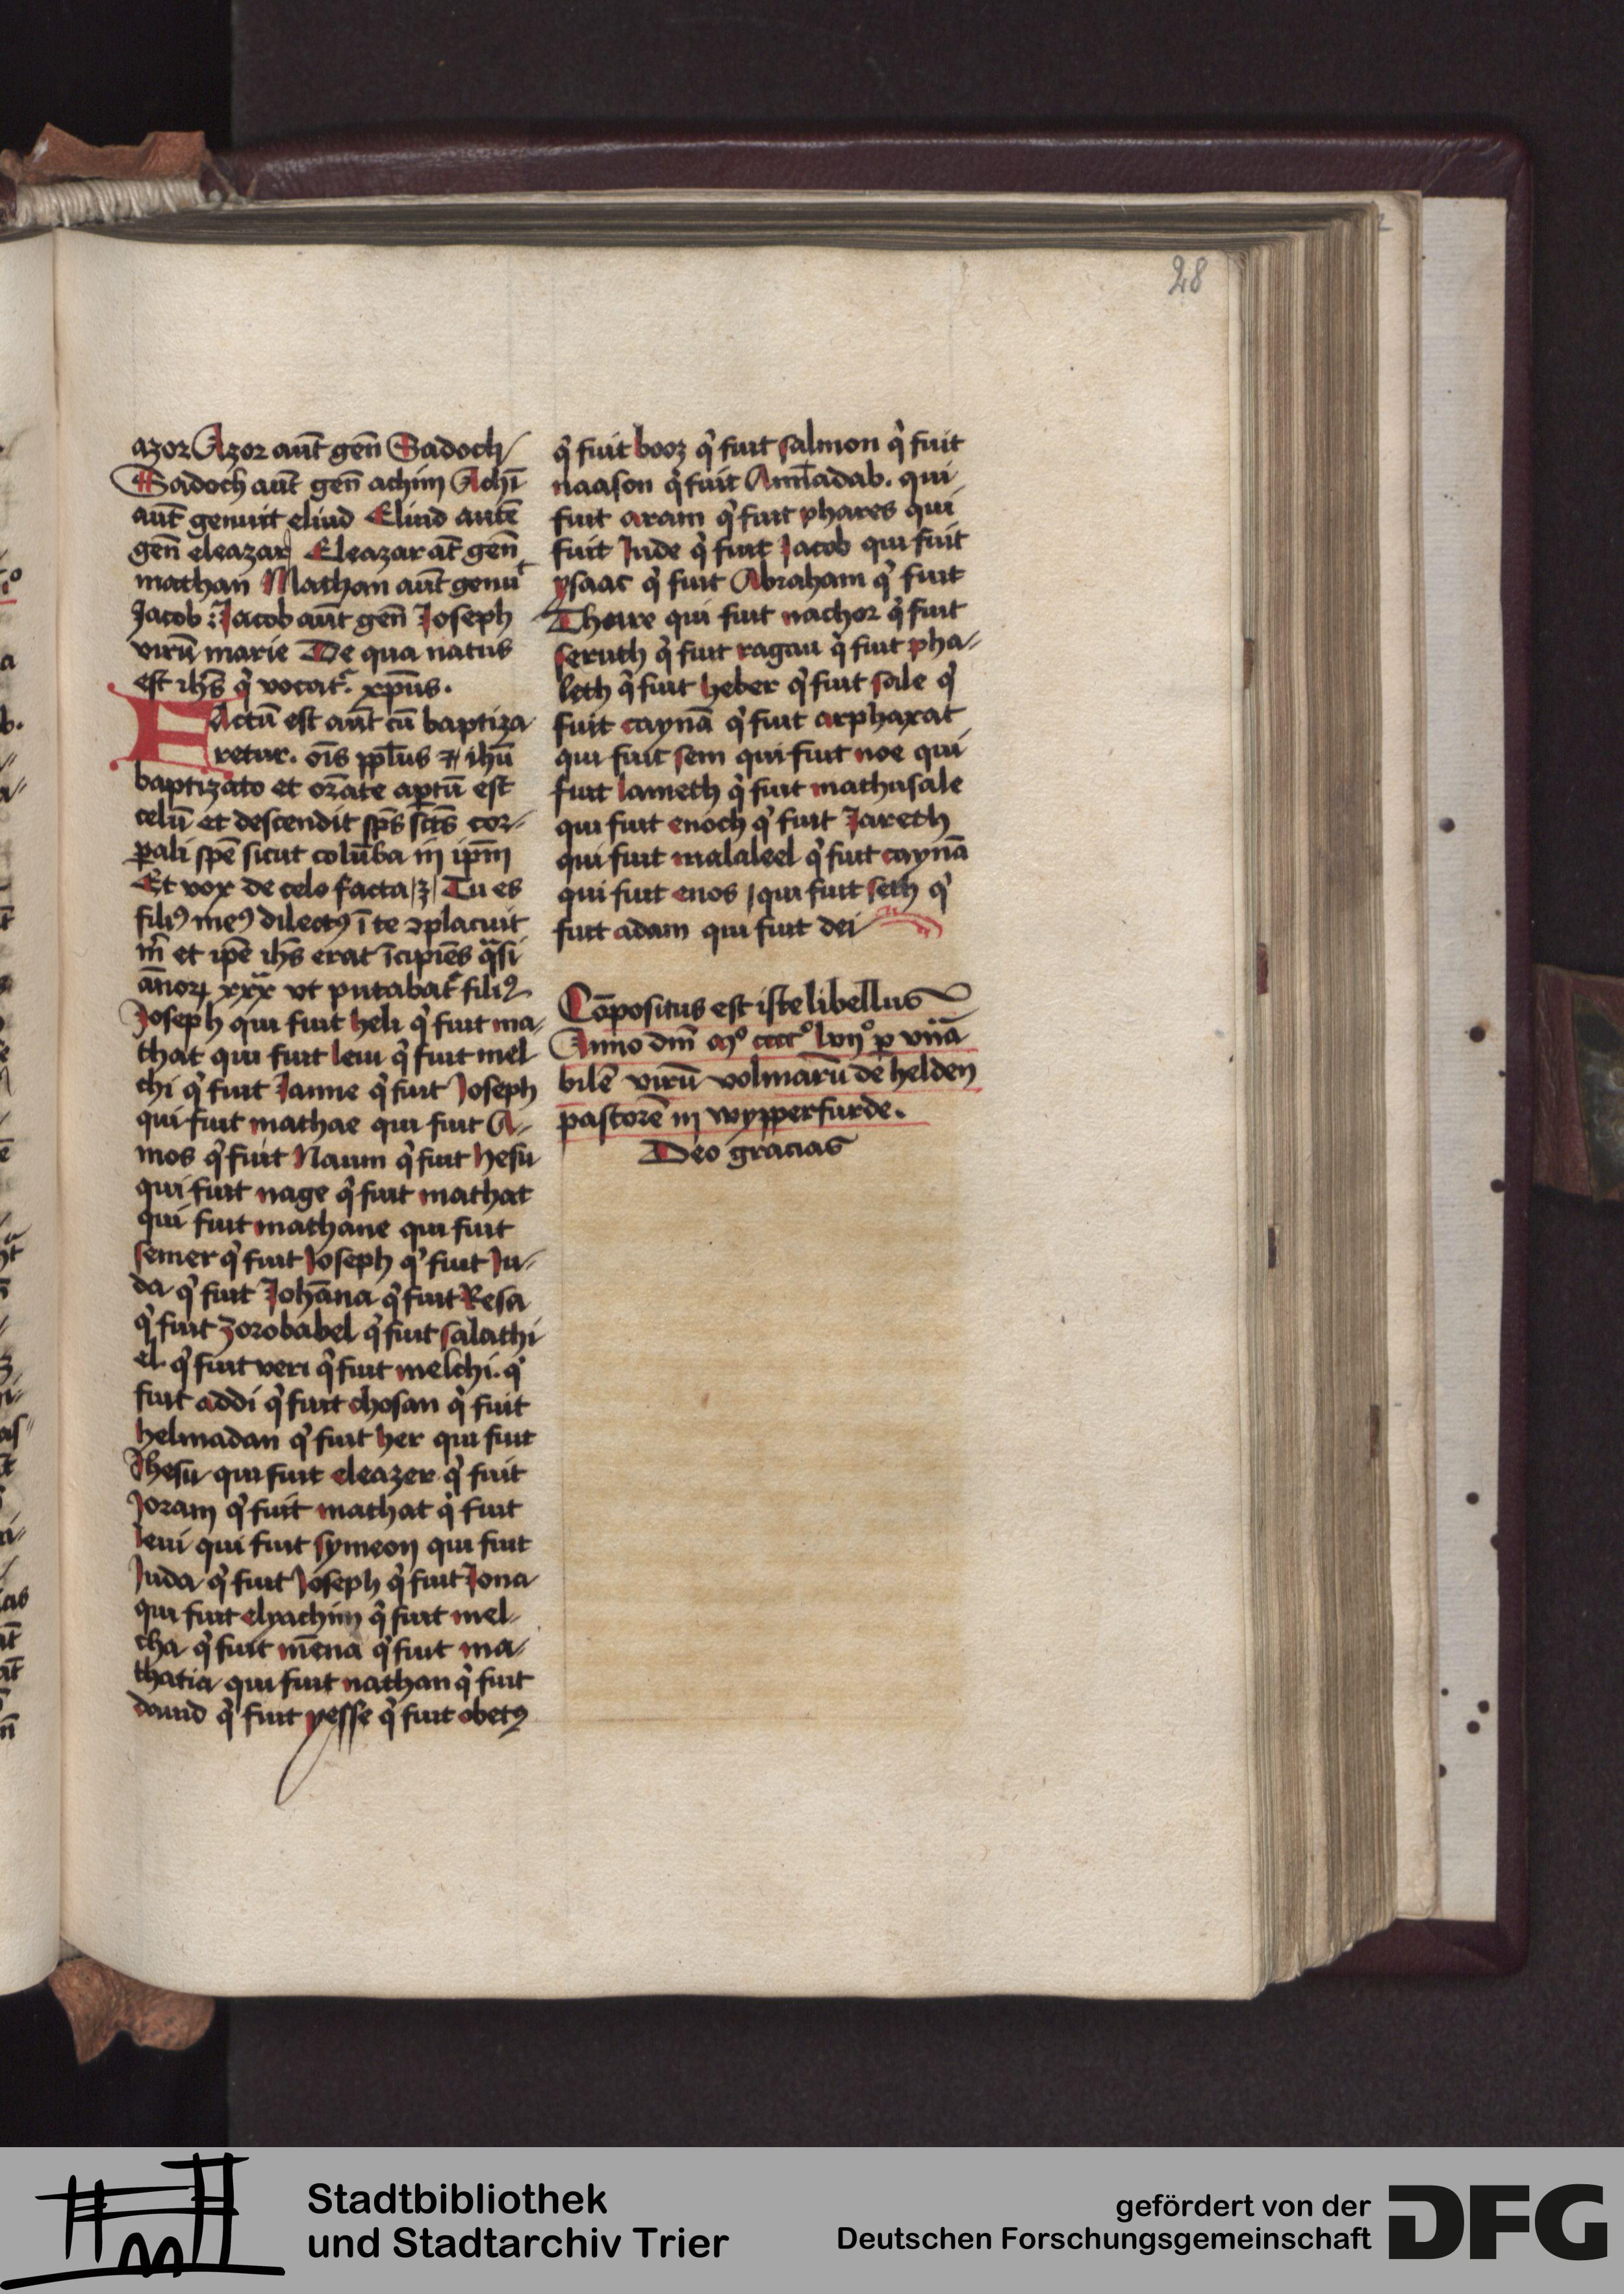 28
azor Azor aūt gen̄ Sadoch
Sadoch aūt gen̄ achim Achī
aūt genuit eliud Eliud autē
gen̄ eleazar Eleazar āt gen̄
mathan Mathan aūt genuᵗ
Jacob : Jacob aūt gen̄ Joseph
virū marie De qua natus
est ih̄s qͥ vocat᷑. xp̄us.
Factū est aūt cū baptiza
retur. oīs ppl̄us et ih̄u
baptizato et or̄ate aꝑtū est
celū et descendit sp̄s sc̄s cor-
ꝑali spē sicut colūba in ip̄m
Et vox de celo facta /ʒ/ Tu es
filiꝰ meꝰ dilectꝰ ī te ꝯplacuit
m̄ et ip̄e ih̄s erat īcipiēs qͣsi
ān̄oꝝ xxx vt putabat᷑ filiꝰ
Joseph qui fuit heli qͥ fuit ma-
that qui fuit leui qͥ fuit mel
chi qͥ fuit Janne qͥ fuit Joseph
qui fuit mathae qui fuit A-
mos qͥ fuit Naum qͥ fuit hesu
qui fuit nage qͥ fuit mathat
qui fuit mathane qui fuit
semer qͥ fuit Joseph qͥ fuit Ju-
da qͥ fuit Johāna qͥ fuit Resa
qͥ fuit zorobabel qͥ fuit salathi
el qͥ fuit veri qͥ fuit melchi. qͥ
fuit addi qͥ fuit chosan qͥ fuit
helmadan qͥ fuit her qui fuit
Jhesu qui fuit eleazer qͥ fuit
Joram qͥ fuit mathat qͥ fuit
leui qui fuit symeon qui fuit
Juda qͥ fuit Joseph qͥ fuit Jona
qui fuit elyachim qͥ fuit mel-
cha qͥ fuit mēna qͥ fuit ma-
thatia qui fuit nathan qͥ fuit
dauid qͥ fuit yesse qͥ fuit obetꝰ
qͥ fuit booz qͥ fuit salmon qͥ fuit
naason qͥ fuit Amīadab. qui
fuit aram qͥ fuit phares qui
fuit Jude qͥ fuit Jacob qui fuit
ysaac qͥ fuit Abraham qͥ fuit
Thare qui fuit nachor qͥ fuit
seruth qͥ fuit ragau qͥ fuit pha-
leth qͥ fuit heber qͥ fuit sale qͥ
fuit caynā qͥ fuit arphaxat
qui fuit sem qui fuit noe qui
fuit lameth qͥ fuit mathusale
qui fuit enoch qͥ fuit Jareth
qui fuit malaleel qͥ fuit caynā
qui fuit enos / qui fuit seth qͥ
fuit adam qui fuit dei
Cōpositus est iste libellus
Anno dn̄i mº ccccº lvijº ꝑ vn̄a
bilē virū volmarū de helden
pastorē in wypperfurde.
Deo gracias
Stadtbibliothek
und Stadtarchiv Trier
gefördert von der
Deutschen Forschungsgemeinschaft
DFG